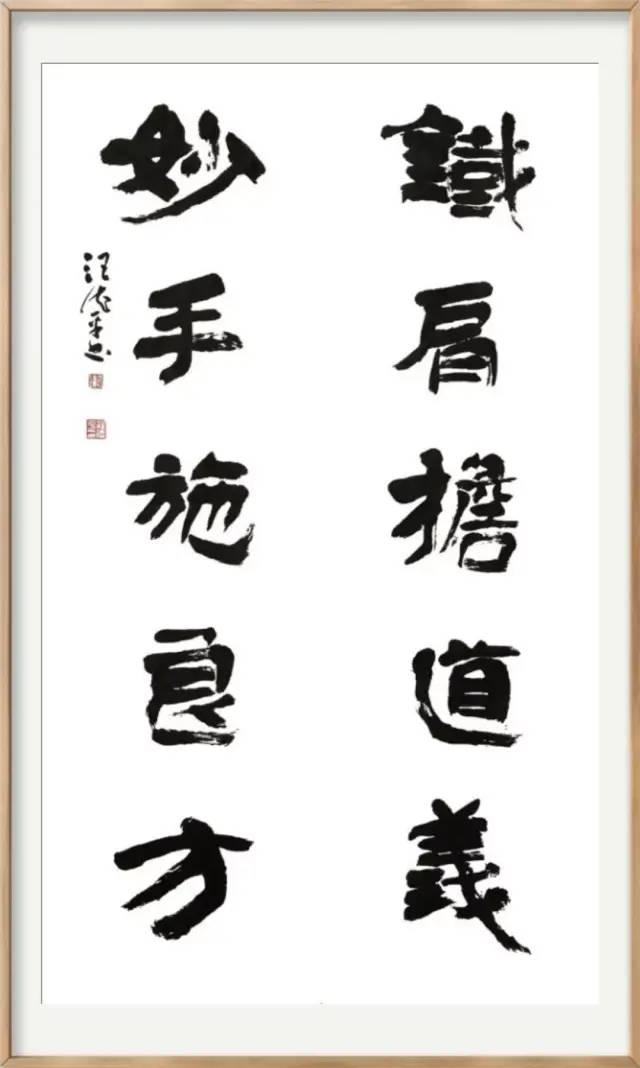 鐵肩擔道義
妙手施良方
汪德平書